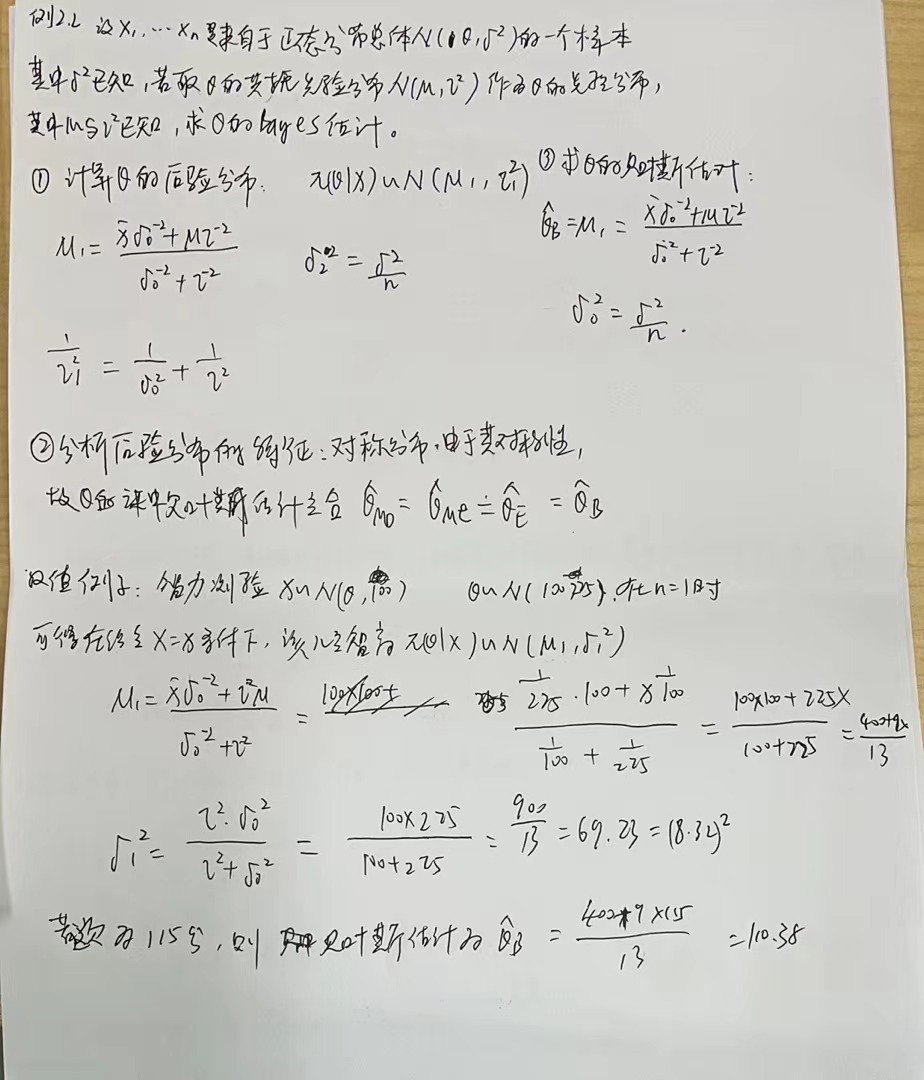 例2.2 设x₁,…xₙ是来自于正态分布总体N(θ,σ²)的一个样本
其中σ²已知,若取θ的共轭先验分布N(μ,τ²)作为θ的先验分布,
其中μ与τ²已知,求θ的bayes估计。
① 计算θ的后验分布: π(θ|x)∪N(μ₁,τ₁²)
μ₁ = (x̄σ₀⁻²+μτ⁻²)/(σ₀⁻²+τ⁻²) σ₂² = σ²/n
1/τ₁² = 1/σ₀² + 1/τ²
③求θ的贝叶斯估计:
θ̂B=μ₁ = (x̄σ₀⁻²+μτ⁻²)/(σ₀⁻²+τ⁻²)
σ₀² = σ²/n.
②分析后验分布的特征:对称分布,由于其对称性,
故θ的 贝叶斯估计 θ̂MD = θ̂Me = θ̂E = θ̂B
数值例子:智力测验 x∪N(θ,100) θ∪N(100,225),在n=1时
可得在给定X=x条件下,该儿童智商π(θ|x)∪N(μ₁,σ₁²)
μ₁ = (x̄σ₀⁻²+τ²μ)/(σ₀⁻²+τ²) = (1/225·100+x 1/100)/(1/100+1/225) = (100×100+225x)/(100+225) = (400+9x)/13
σ₁² = (τ²·σ₀²)/(τ²+σ₀²) = (100×225)/(100+225) = 900/13 = 69.23 = (8.32)²
若 为115分,则 贝叶斯估计为 θ̂B = (400+9×115)/13 =110.38